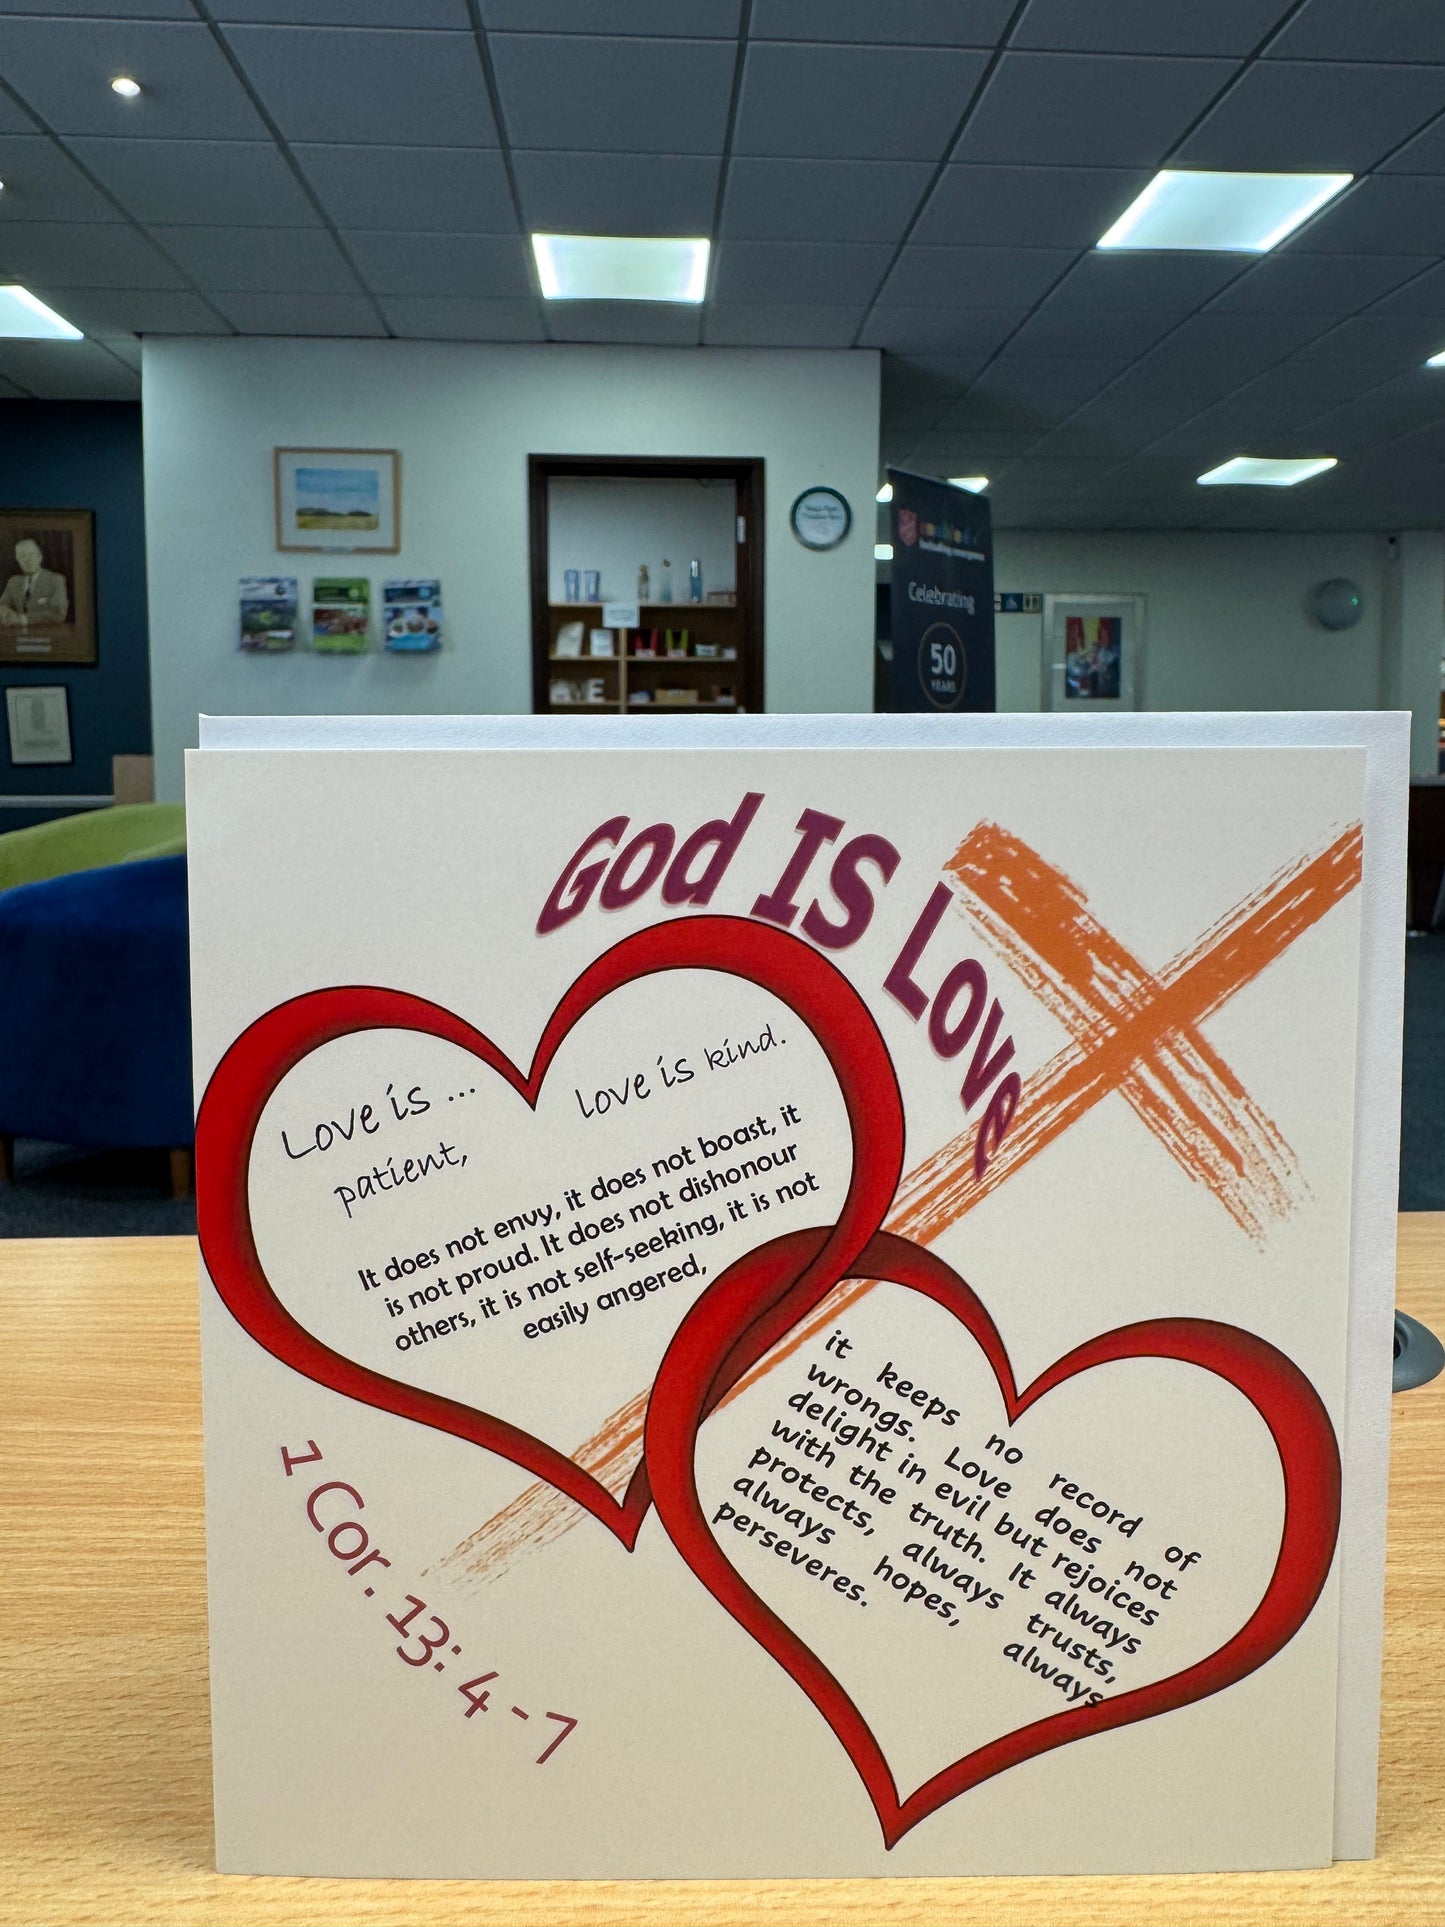 Celebrating
50
YEARS
God IS Love
Love is ...
patient,
love is kind.
It does not envy, it does not boast, it
is not proud. It does not dishonour
others, it is not self-seeking, it is not
easily angered,
it keeps no record of
wrongs. Love does not
delight in evil but rejoices
with the truth. It always
protects, always trusts,
always hopes, always
perseveres.
1 Cor. 13: 4 - 7